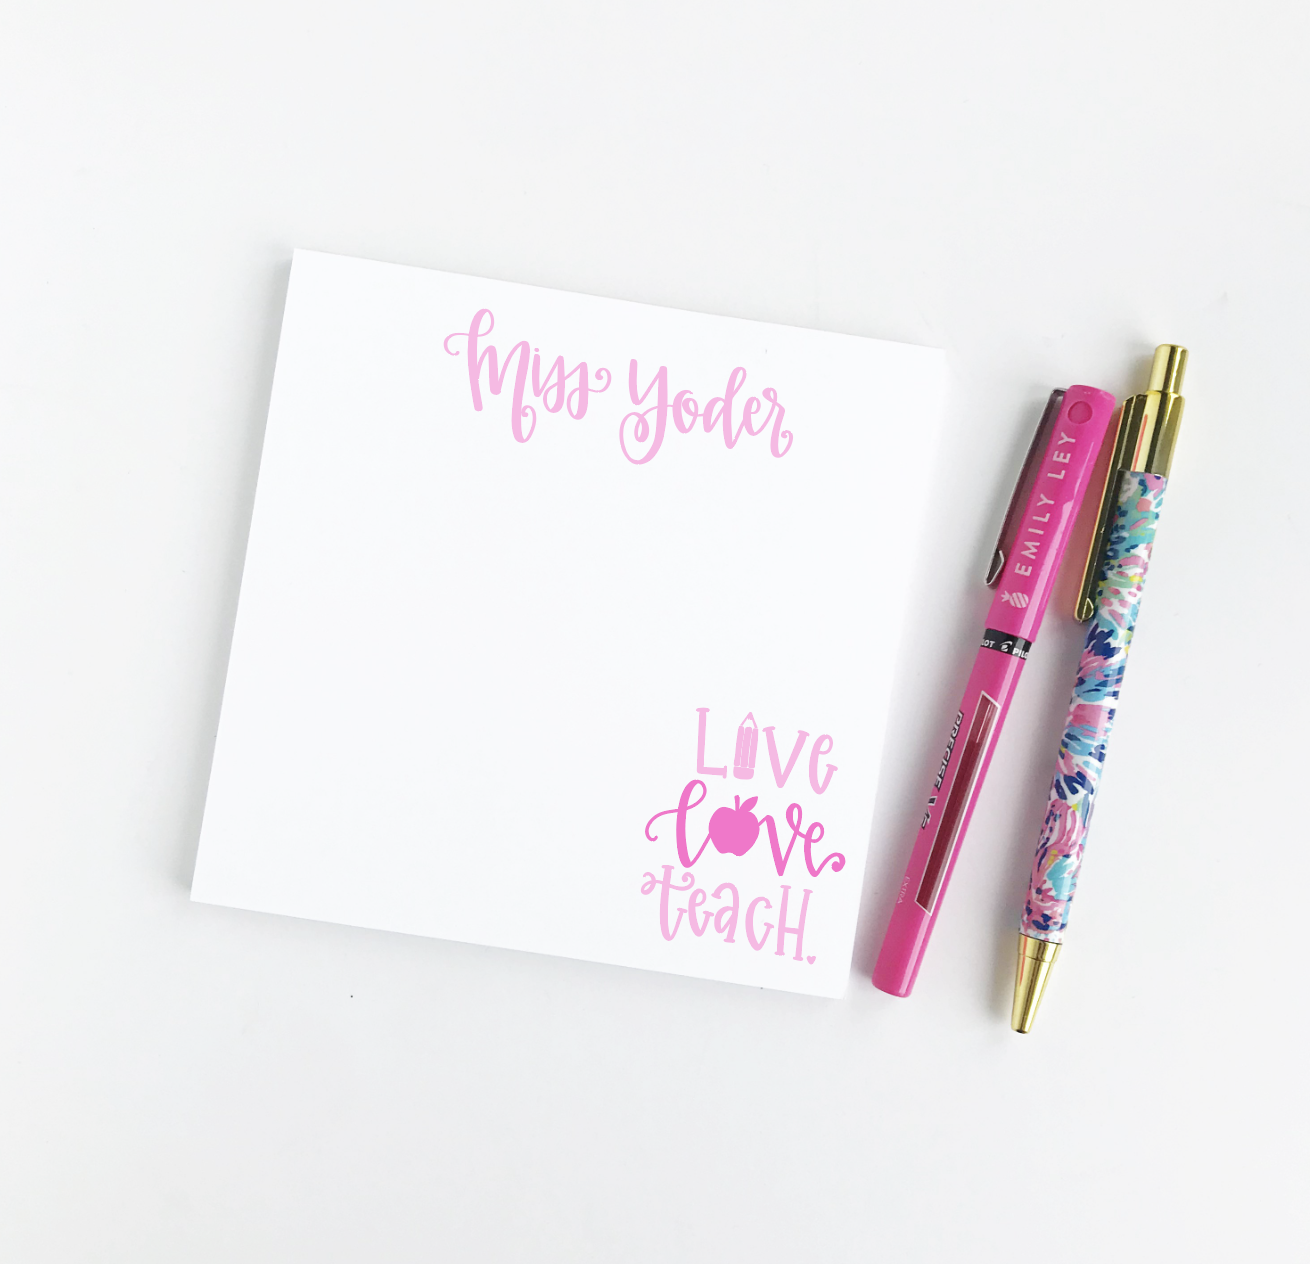 Miss Yoder
Live
love
teacH.
EMILY LEY
PILOT
PRECISE V5
EXTRA